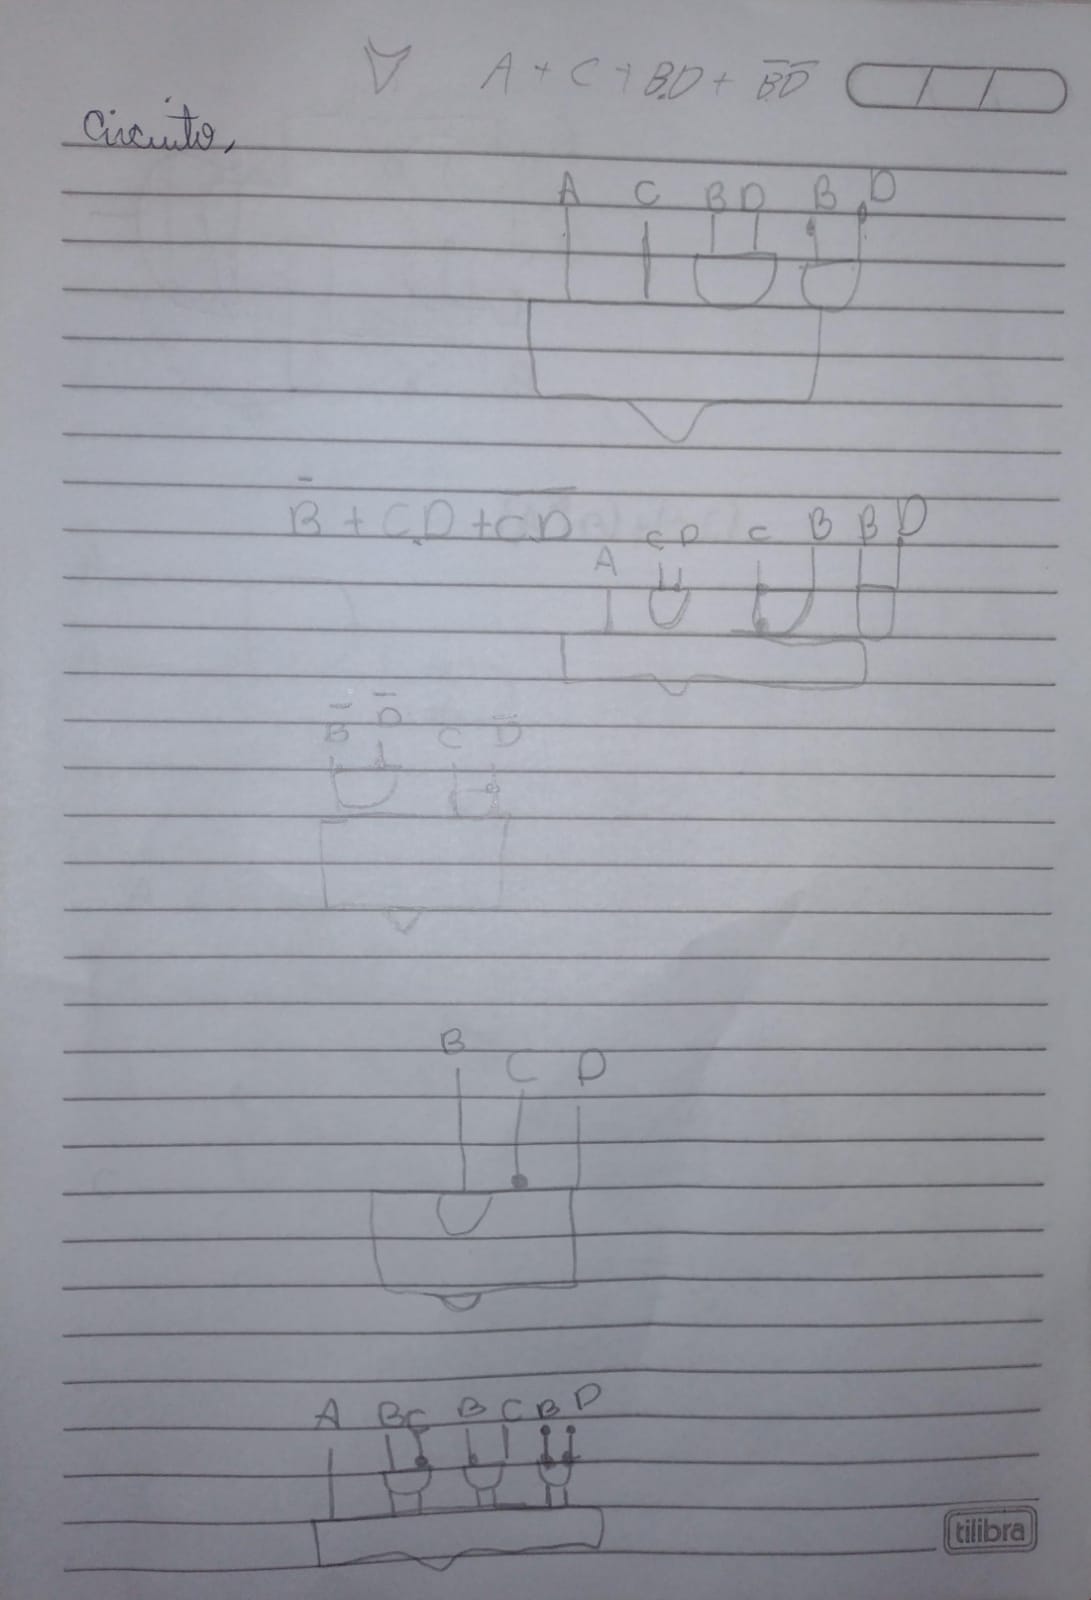 A + C + B.D + B̅D̅
Circuito,
A C B D B D
B̅ + C.D + C̅.D̅
C D C B B D
A
B̅ D̅ C D̅
B
C D
A B C B C B D
tilibra